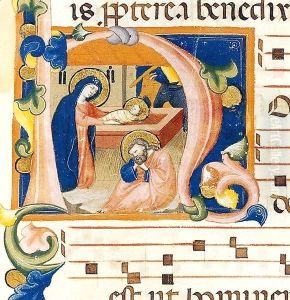 is ppterea benedix
de
est ut homine